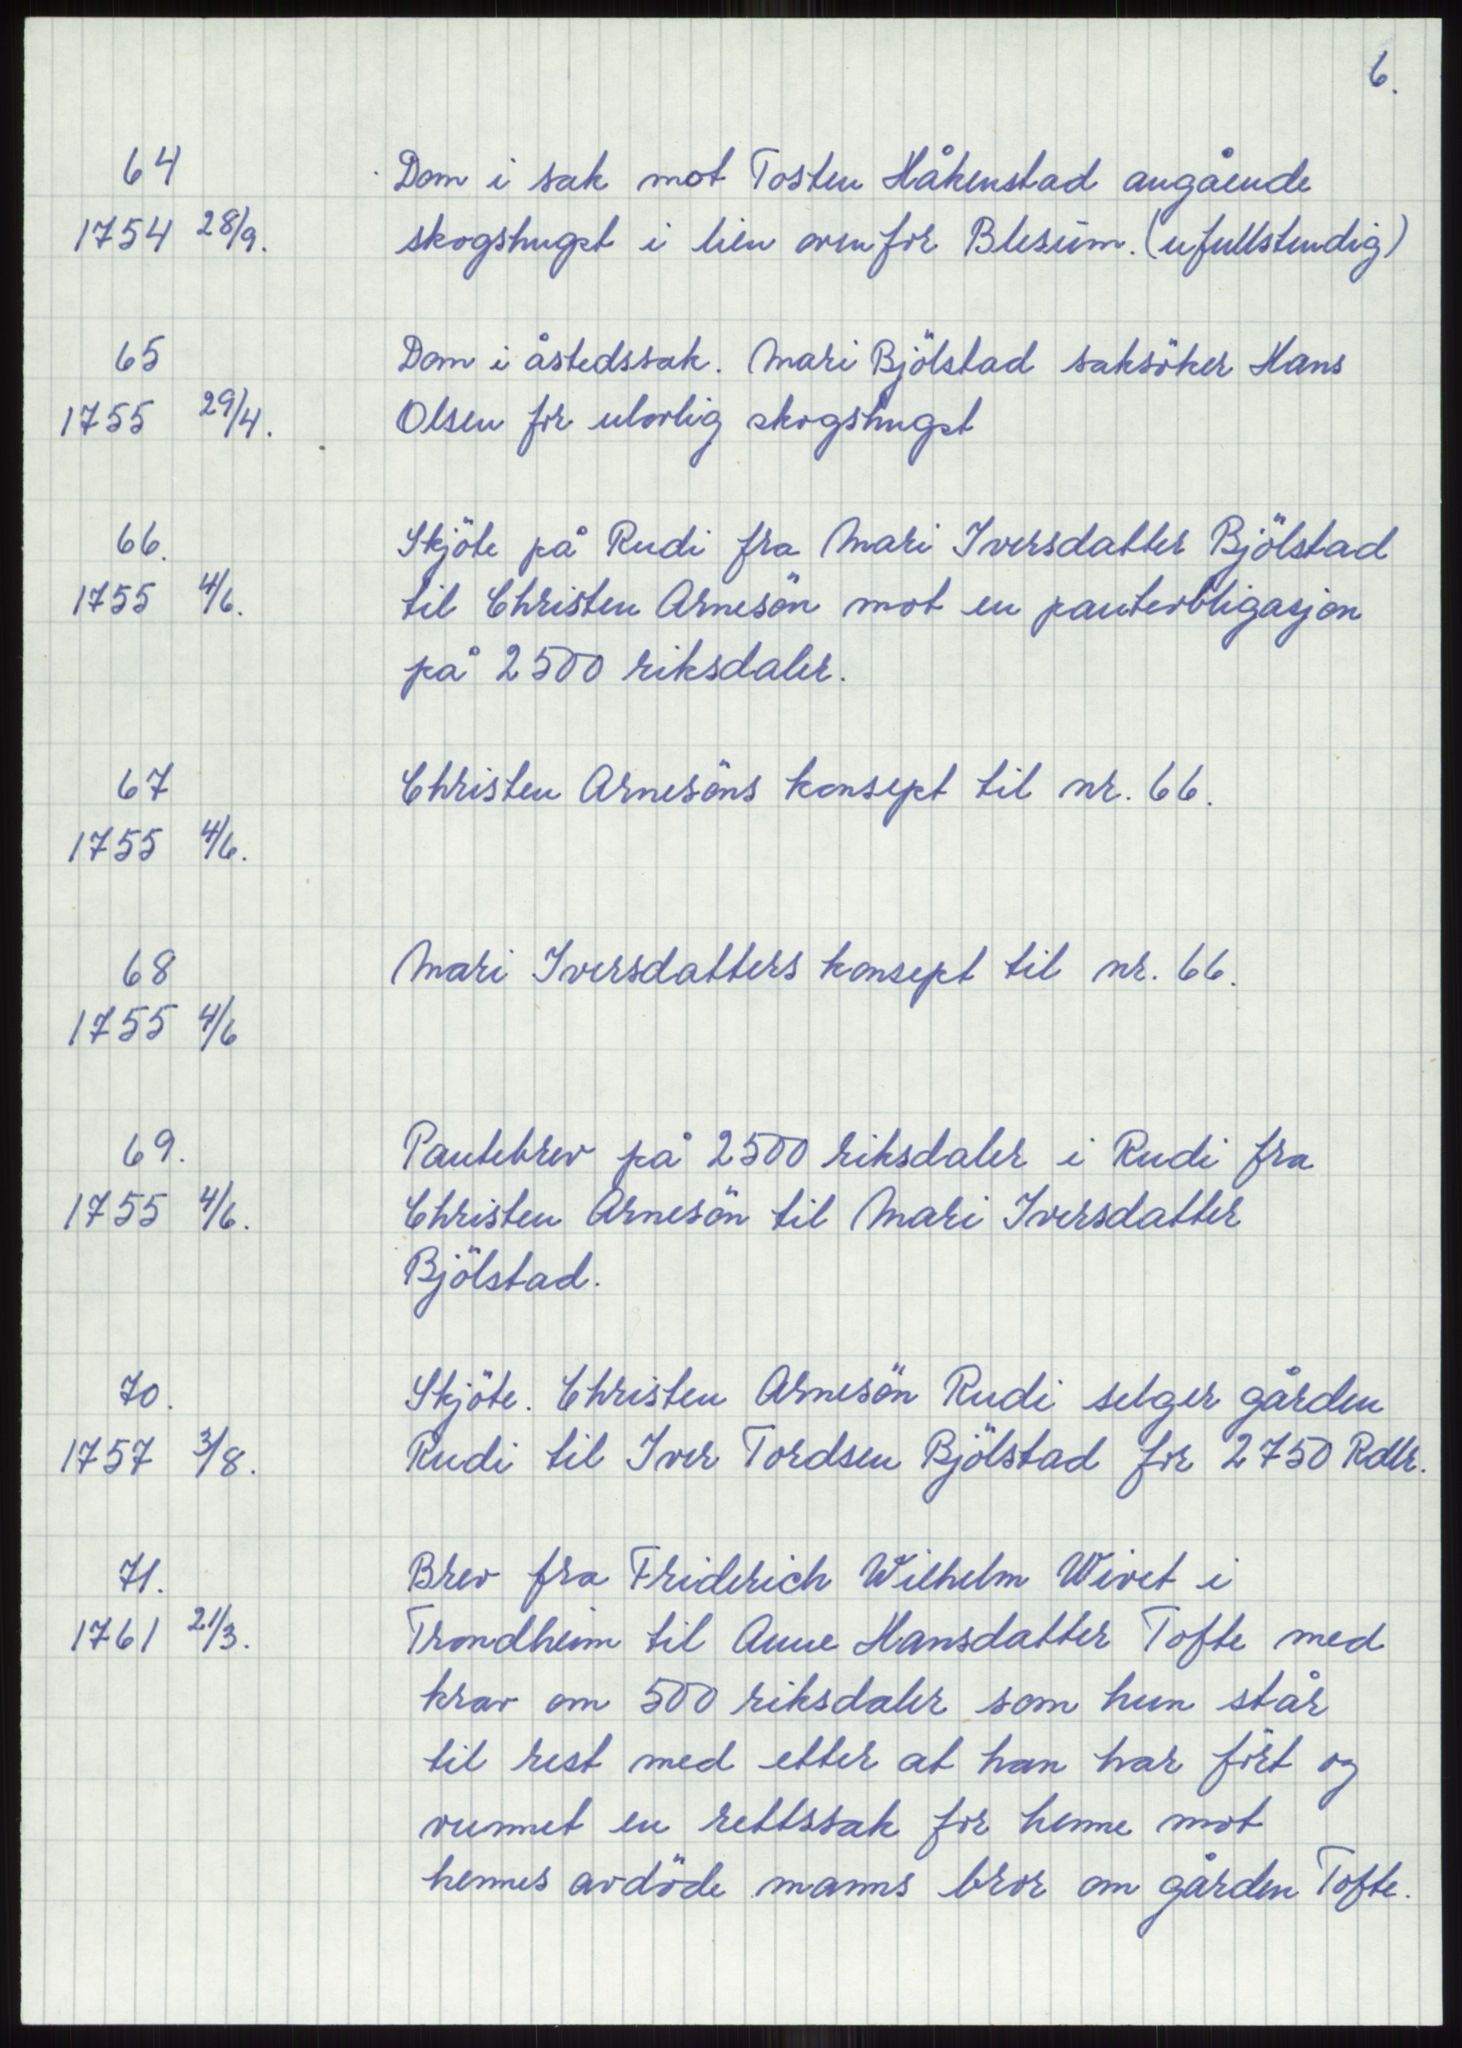 6.
64 Dom i sak mot Tosten Håkenstad angående
1754 28/9. skogshugst i lien ovenfor Blesum. (ufullstendig)
65 Dom i åstedssak. Mari Bjölstad saksöker Hans
1755 29/4. Olsen for ulovlig skogshugst
66. Skjöte på Rudi fra Mari Iversdatter Bjölstad
1755 4/6. til Christen Arnesön mot en panteobligasjon
på 2500 riksdaler.
67 Christen Arnesöns konsept til nr. 66.
1755 4/6.
68 Mari Iversdatters konsept til nr. 66.
1755 4/6
69. Pantebrev på 2500 riksdaler i Rudi fra
1755 4/6. Christen Arnesön til Mari Iversdatter
Bjölstad.
70. Skjöte. Christen Arnesön Rudi selger gården
1757 3/8. Rudi til Iver Tordsen Bjölstad for 2750 Rdlr.
71. Brev fra Friderich Wilhelm Wivet i
1761 21/3. Trondheim til Anne Hansdatter Tofte med
krav om 500 riksdaler som hun står
til rest med etter at han har fört og
vunnet en rettssak for henne mot
hennes avdöde manns bror om gården Tofte.